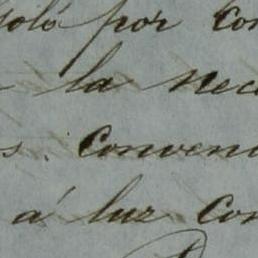 solo por con
la nec
s. Conven
á luz con